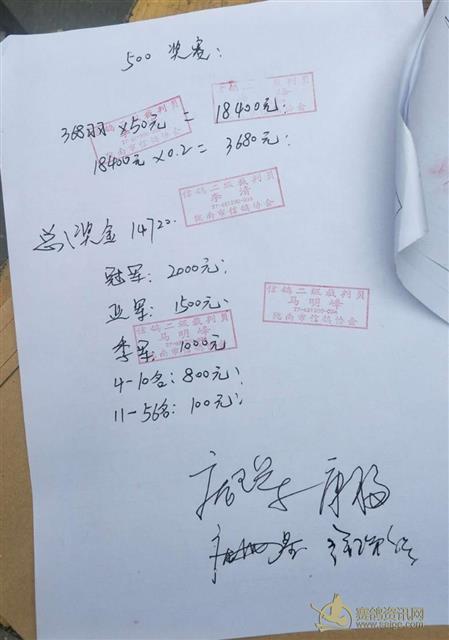 500 奖赛:
368羽 ×50元 = 18400元;
18400元 ×0.2= 3680元;
信鸽二级裁判员
李 清
陇南市信鸽协会
总奖金 14720.
冠军: 2000元;
亚军: 1500元;
信鸽二级裁判员
马明峰
陇南市信鸽协会
季军: 1000元
信鸽二级裁判员
马明峰
陇南市信鸽协会
4-10名: 800元;
11-56名: 100元;
赛鸽资讯网